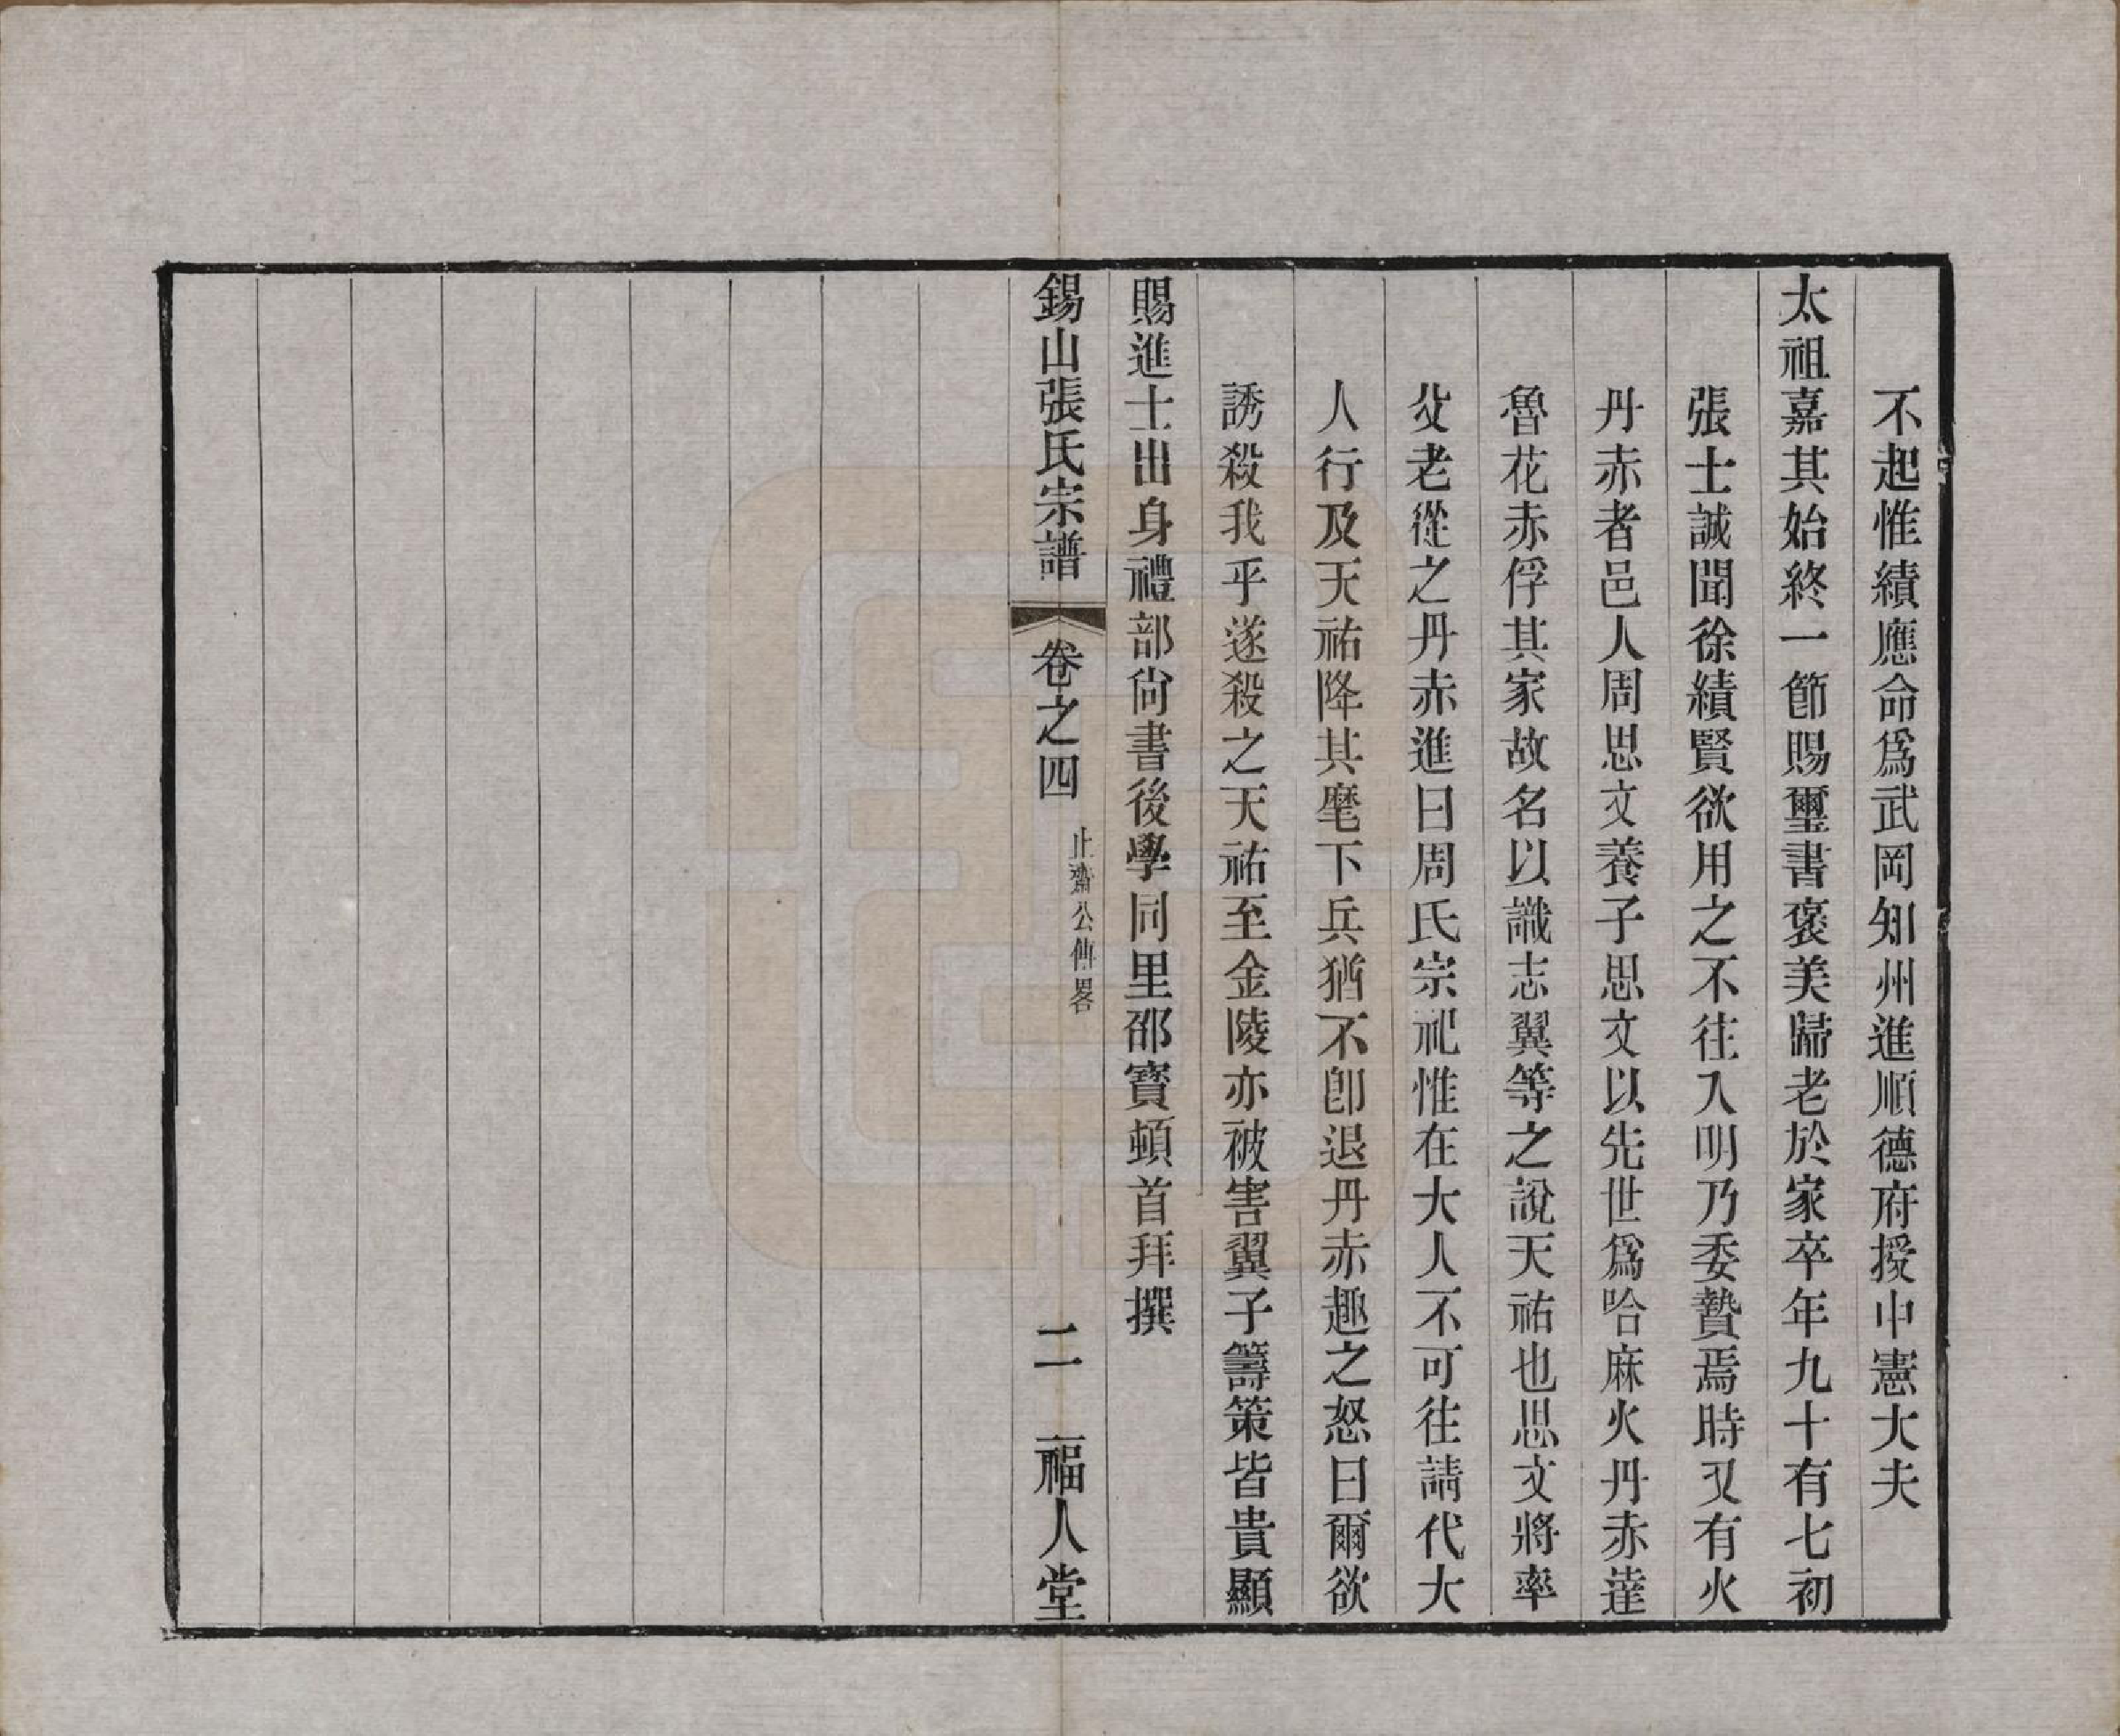 不起惟績應命爲武岡知州進順德府授中憲大夫
太祖嘉其始終一節賜璽書褒美歸老於家卒年九十有七初
張士誠聞徐績賢欲用之不往入明乃委贄焉時又有火
丹赤者邑人周思文養子思文以先世爲哈麻火丹赤達
魯花赤俘其家故名以識志翼等之說天祐也思文將率
父老從之丹赤進曰周氏宗祀惟在大人不可往請代大
人行及天祐降其麾下兵猶不卽退丹赤趣之怒曰爾欲
誘殺我乎遂殺之天祐至金陵亦被害翼子籌策皆貴顯
賜進士出身禮部尙書後學同里邵寶頓首拜撰
錫山張氏宗譜 卷之四 止齋公傳畧 二 一福人堂